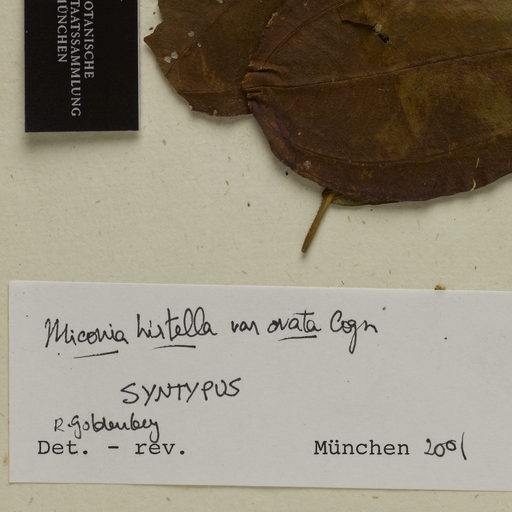 BOTANISCHE
STAATSSAMMLUNG
MÜNCHEN
Miconia hirtella var ovata Cogn
SYNTYPUS
R. Goldenberg
Det. - rev. München 2001